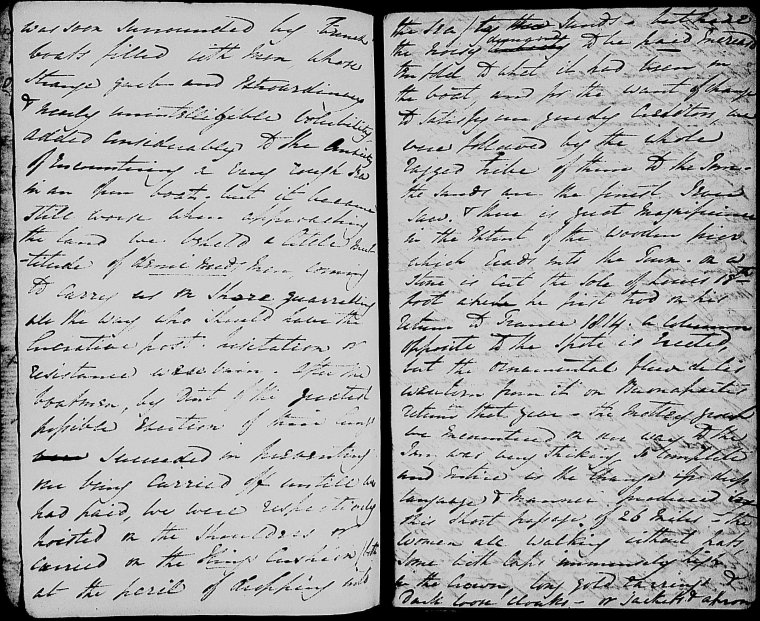 was soon surrounded by French
boats filled with Men whose
strange garb and extraordinary
& nearly unintelligible volubility
added considerably to the anxiety
of encountering a very rough Sea
in an open boat. but it became
still worse when approaching
the land we beheld a little mul
-titude of Men coming
to carry us on Shore quarrelling
all the way who should have the
lucrative post. hesitation or
resistance were vain. After the
boatmen, by dint of the greatest
possible exertion of their lungs
succeeded in preventing
our being carried off until we
had paid, we were respectively
hoisted on the Shoulders or
carried on the Kings Cushion both
at the peril of dropping into
the Sea to the Sands - but here
the noisy demands to be paid
the fold to what it had been in
the boat, and for the want of change
to satisfy our greedy creditors, we
were followed by the whole
ragged tribe of them to the Inn.
the Sands are the finest I ever
saw. & there is great magnificence
in the extent of the wooden pier
which leads into the Town. on a
Stone is cut the sole of Louis 18th
foot where he first trod on his
return to France 1814. a Column
opposite to the Spot is erected,
but the ornamental fleur de lis
was torn from it on Buonapartes
return that year - the motley
we encountered on our way to the
Inn was very striking. So complete
and entire is the change of
language & manner produced
this short passage of 26 Miles - the
Women all walking without hats,
some with Caps immensely high
in the crown long gold earrings &
Dark loose cloaks - or jackets & apron